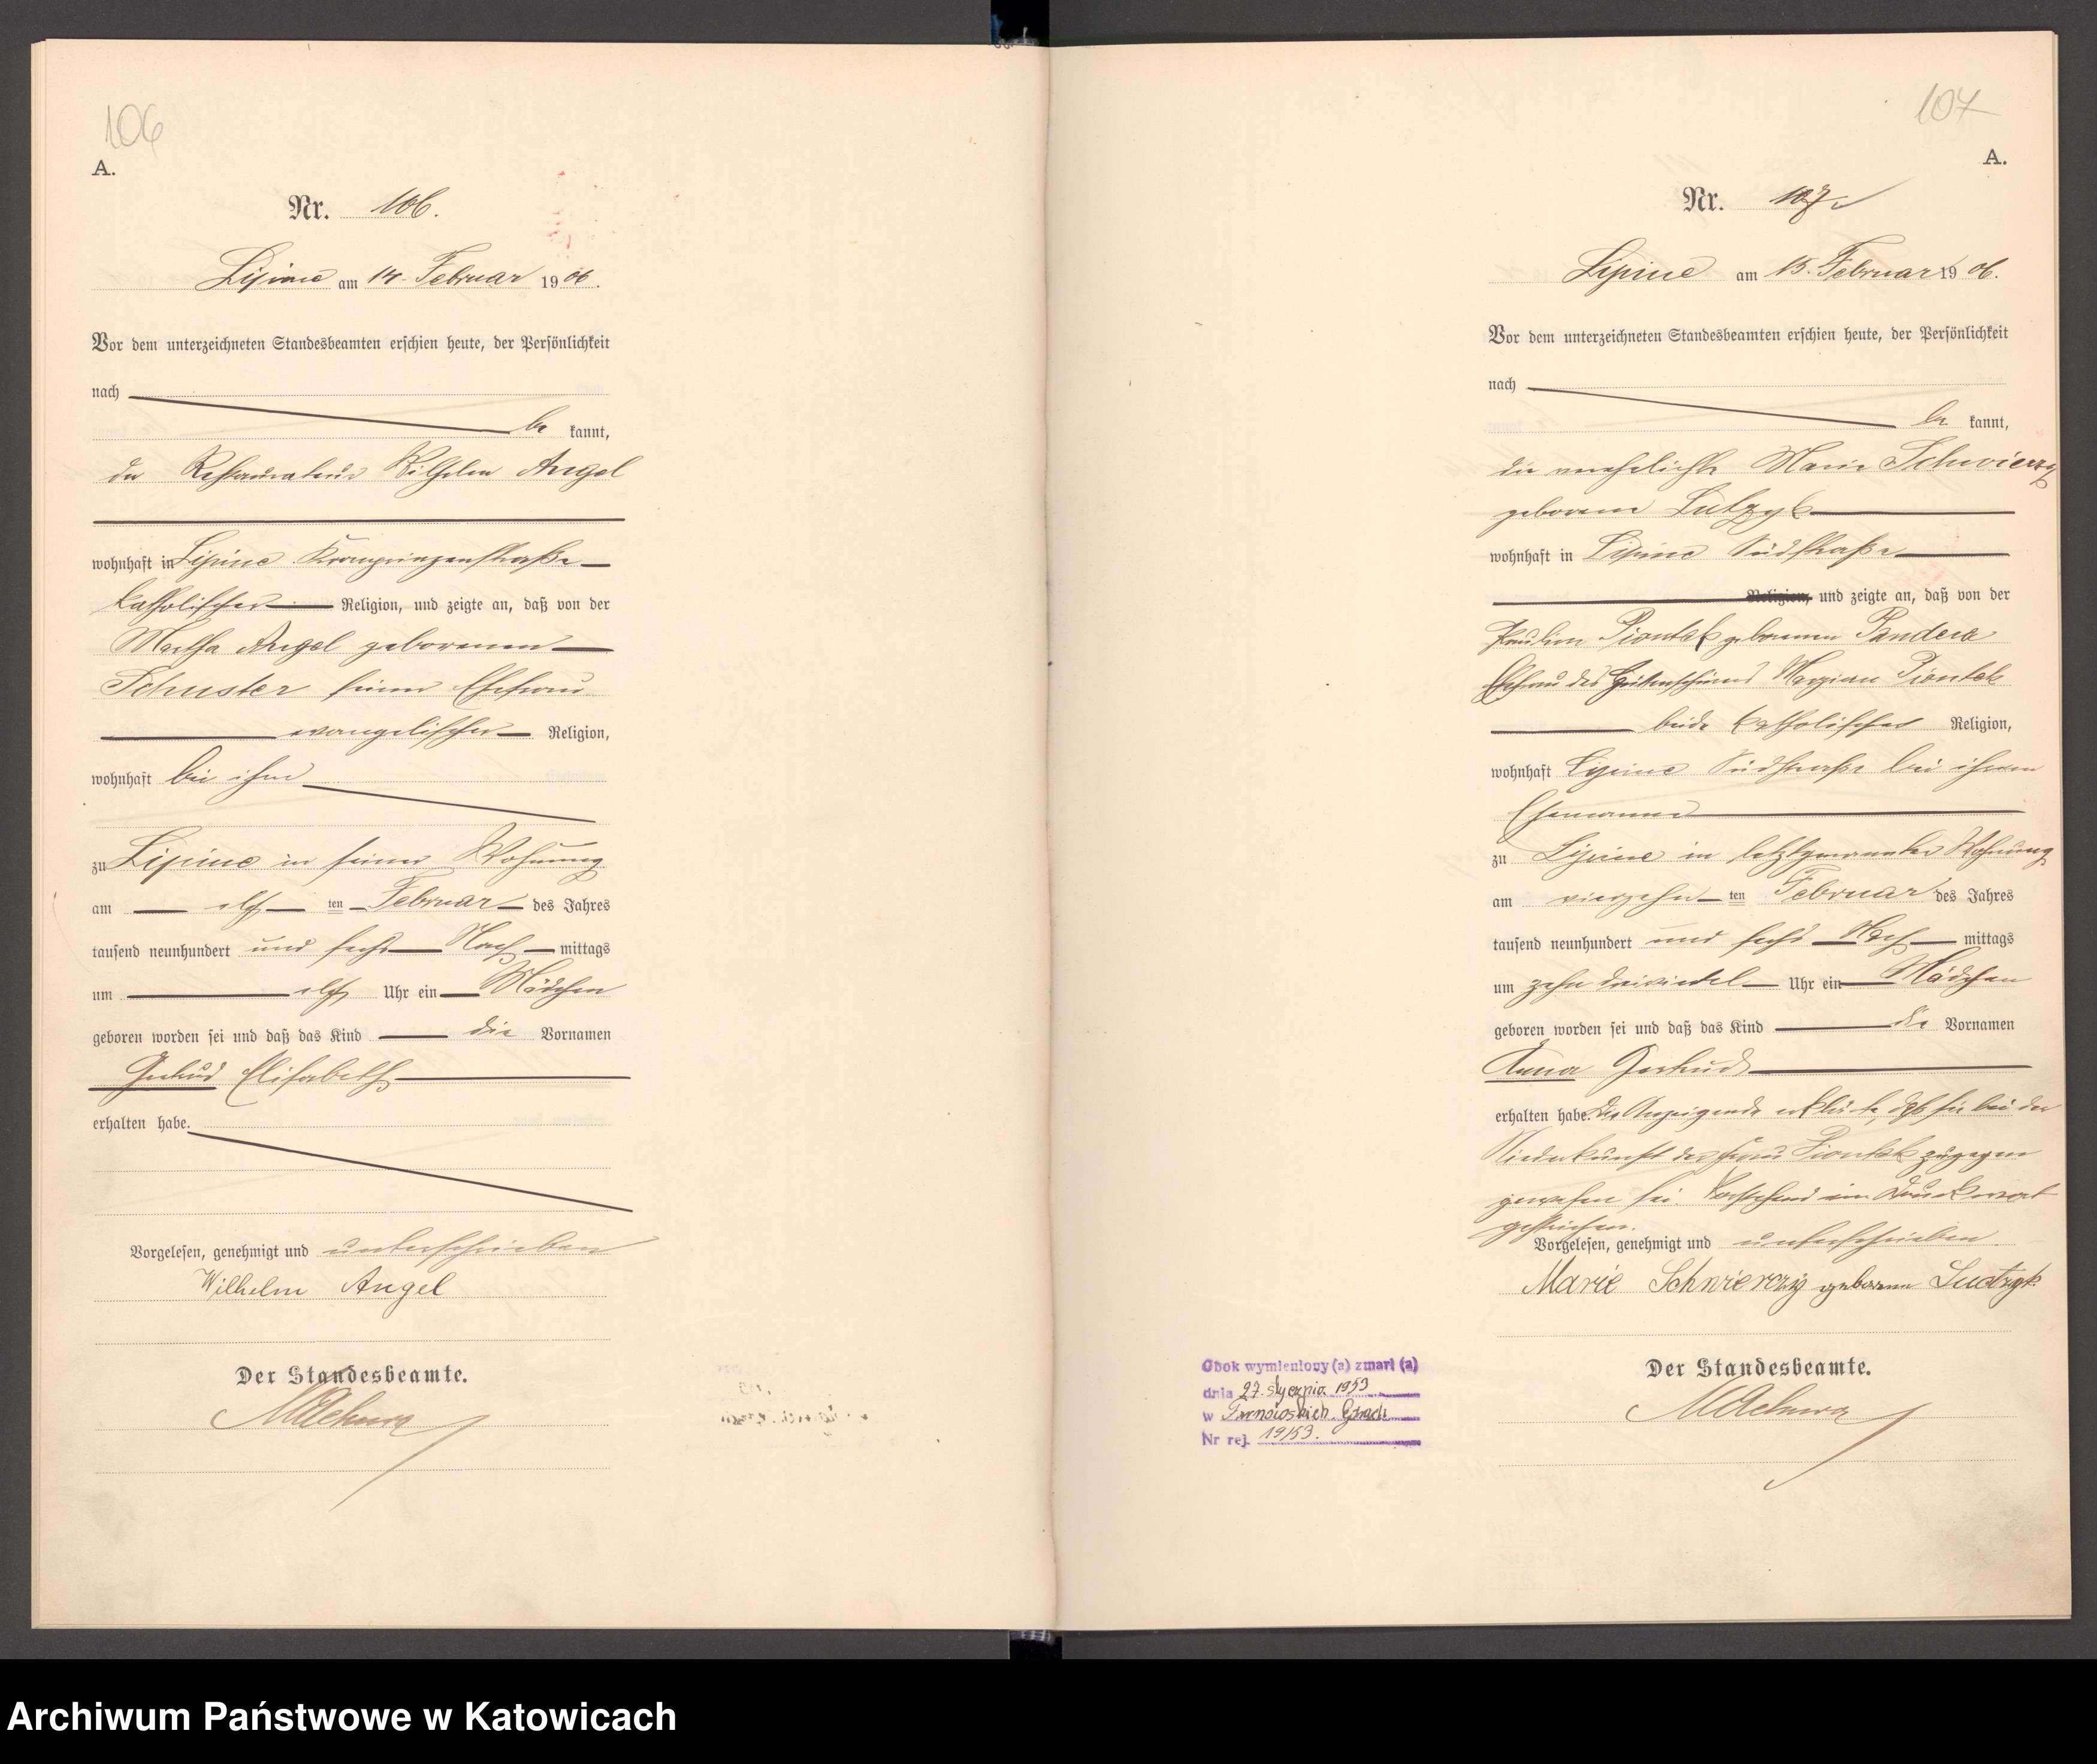 106
A.
Nr. 106.
Lipine am 14. Februar 1906.
Vor dem unterzeichneten Standesbeamten erschien heute, der Persönlichkeit
nach
be kannt,
der Restaurateur Wilhelm Angel
wohnhaft in Lipine Kronprinzenstraße
katholischer Religion, und zeigte an, daß von der
Martha Angel geborenen
Schuster seiner Ehefrau
evangelischer Religion,
wohnhaft bei ihm
zu Lipine in seiner Wohnung
am elf ten Februar des Jahres
tausend neunhundert und sechs Nach mittags
um elf Uhr ein Mädchen
geboren worden sei und daß das Kind die Vornamen
Gertrud Elisabeth
erhalten habe.
Vorgelesen, genehmigt und unterschrieben
Wilhelm Angel
Der Standesbeamte.
107
A.
Nr. 107
Lipine am 15. Februar 1906.
Vor dem unterzeichneten Standesbeamten erschien heute, der Persönlichkeit
nach
be kannt,
die verehelichte Marie Schwierzy
geborene
wohnhaft in Lipine Südstraße
Religion, und zeigte an, daß von der
Pauline Piontek geborenen Pandera
Ehefrau des Piontek
beide katholischer Religion,
wohnhaft Lipine Südstraße bei ihrem
Ehemanne
zu Lipine in letztgenannter Wohnung
am vierzehn ten Februar des Jahres
tausend neunhundert und sechs Nach mittags
um zehn dreiviertel Uhr ein Mädchen
geboren worden sei und daß das Kind die Vornamen
Anna Gertrud
erhalten habe. Die Anzeigende erklärte, daß sie bei der
Niederkunft der Frau Piontek zugegen
gewesen sei. Vorstehend ein Druckwort
gestrichen.
Vorgelesen, genehmigt und unterschrieben.
Marie Schwierczy geborene
Der Standesbeamte.
Obok wymieniony (a) zmarł (a)
dnia 27. stycznia 1953
w Tarnowskich Górach
Nr rej. 19/53.
Archiwum Państwowe w Katowicach